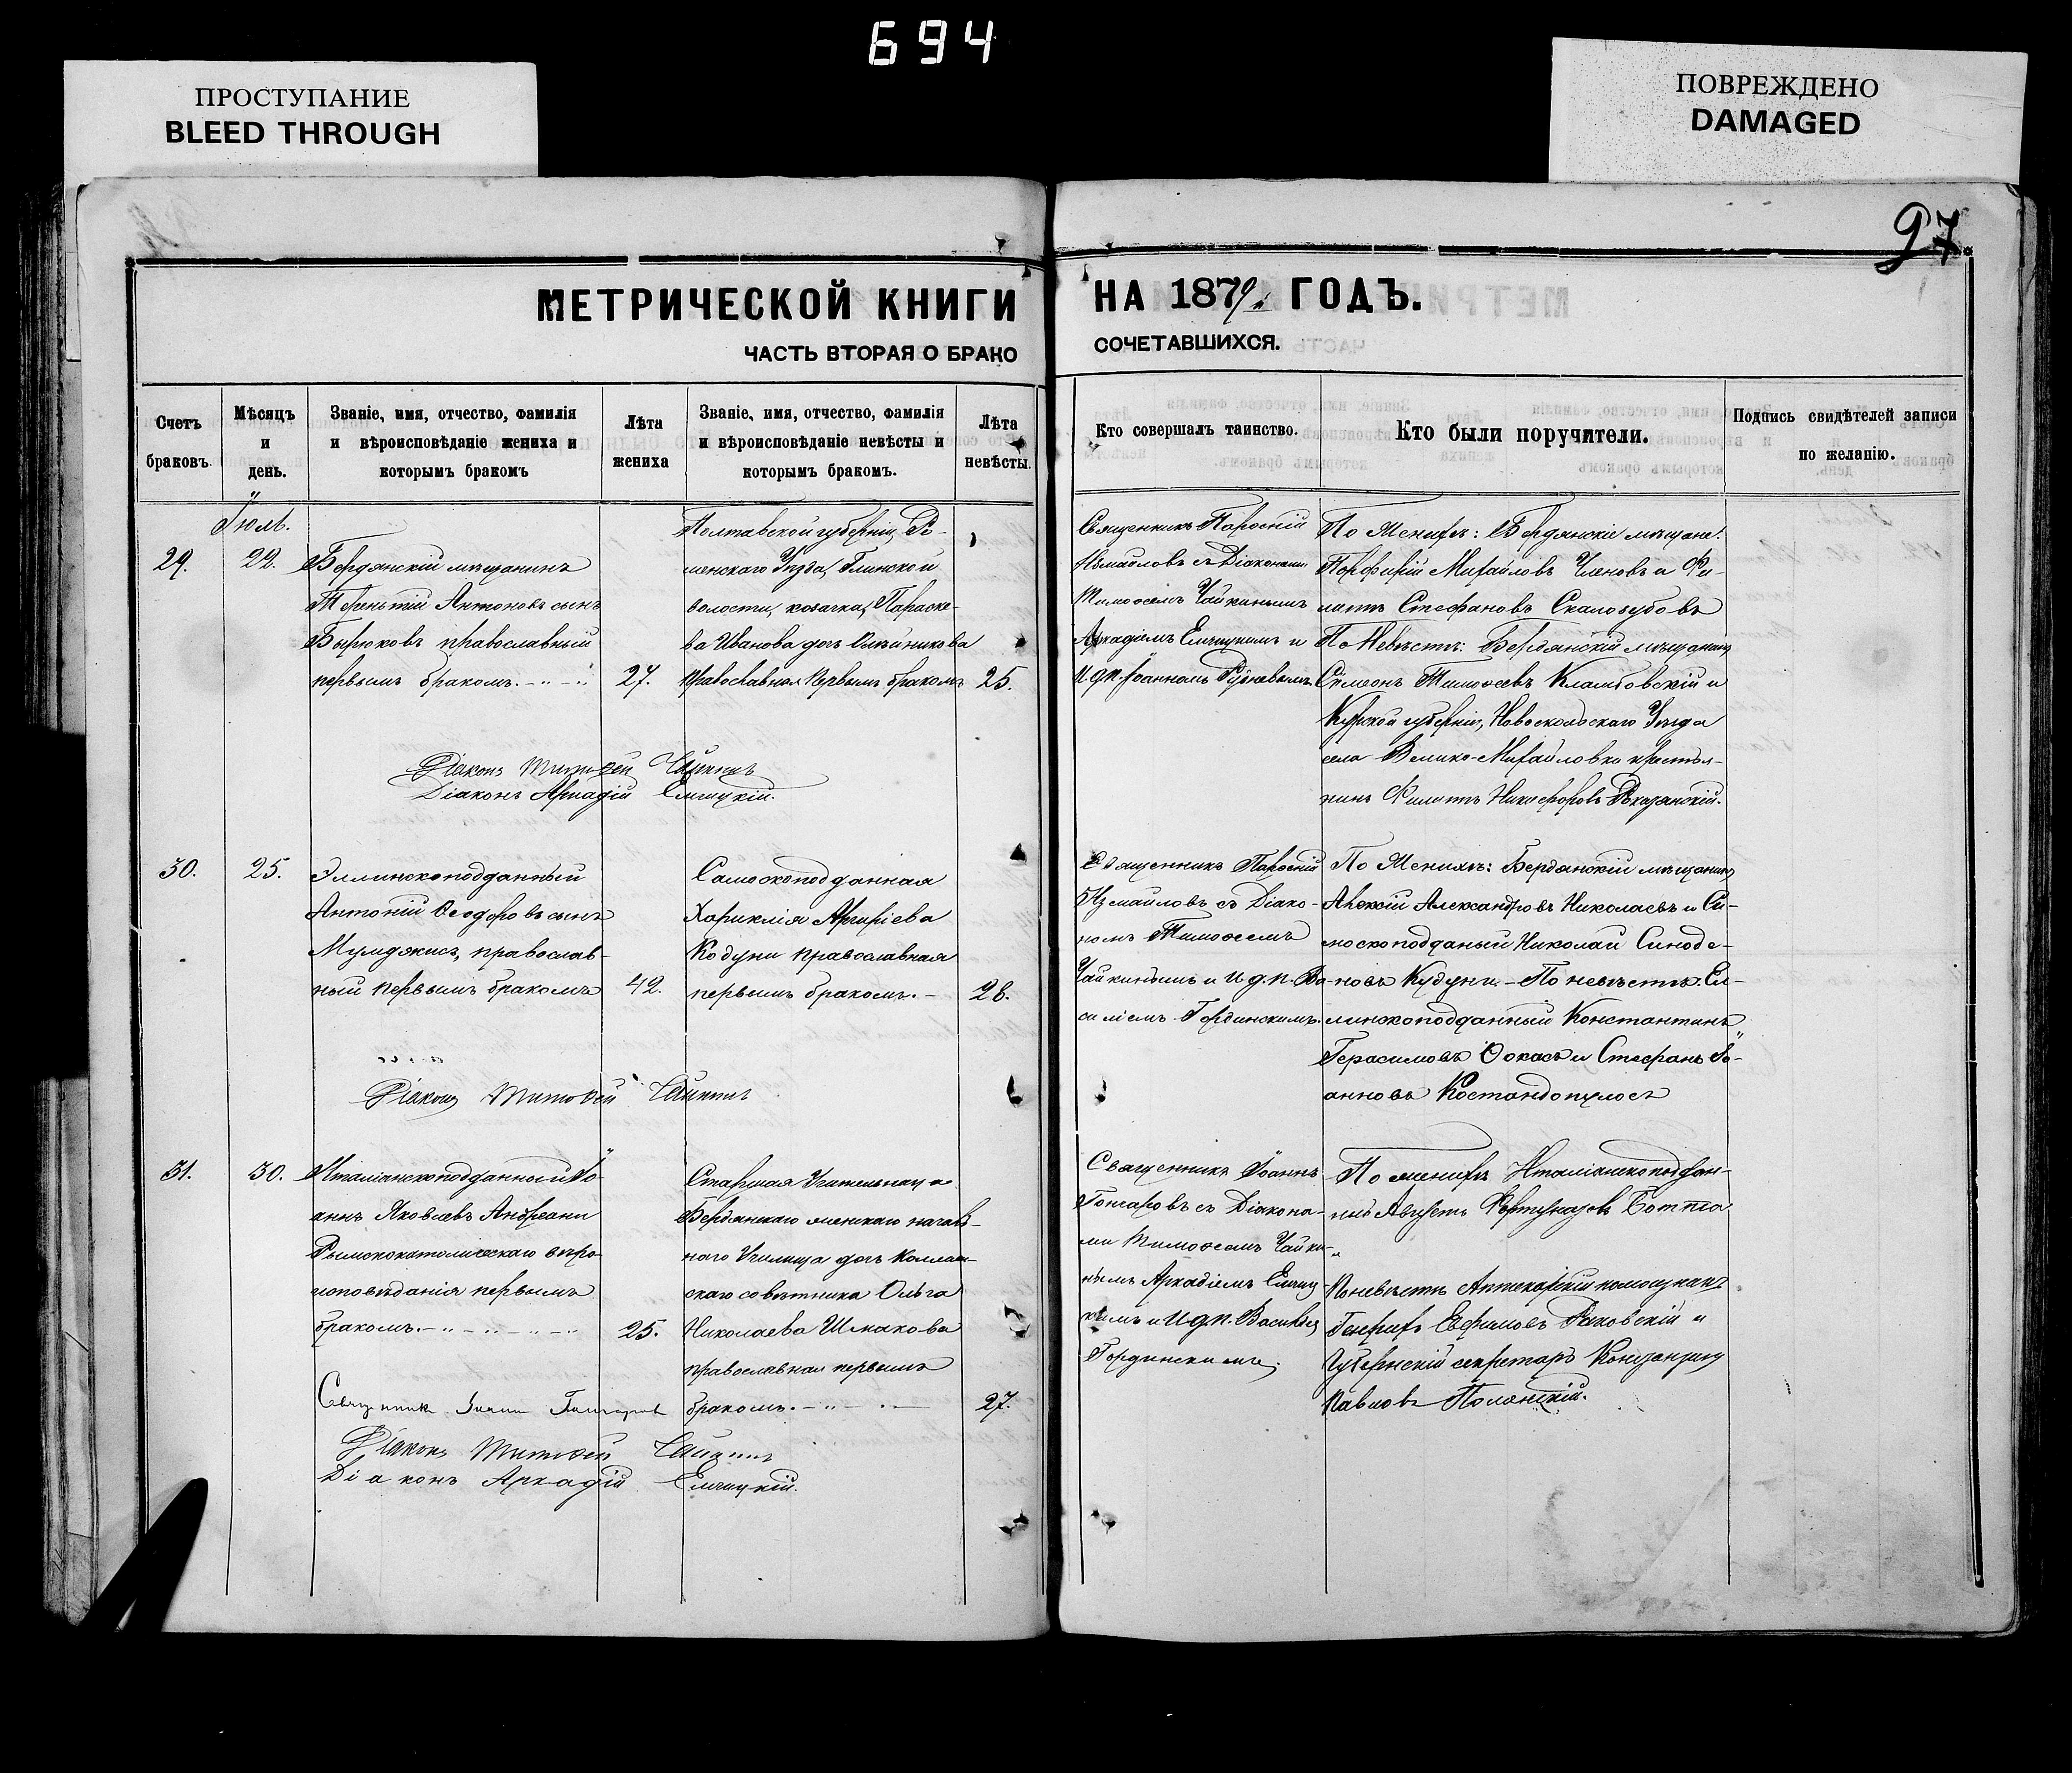 694
ПРОСТУПАНИЕ
BLEED THROUGH
ПОВРЕЖДЕНО
DAMAGED
97
МЕТРИЧЕСКОЙ КНИГИ
ЧАСТЬ ВТОРАЯ О БРАКО
НА 1879 ГОДЪ.
СОЧЕТАВШИХСЯ.
Счетъ
браковъ.
Мѣсяцъ
и
день.
Званіе, имя, отчество, фамилія
и вѣроисповѣданіе жениха и
которымъ бракомъ
Лѣта
жениха
Званіе, имя, отчество, фамилія
и вѣроисповѣданіе невѣсты и
которымъ бракомъ.
Лѣта
невѣсты.
Кто совершалъ таинство.
Кто были поручители.
Подпись свидѣтелей записи
по желанію.
Іюль.
29.
22.
Бердянскій мѣщанинъ
Терентій Антоновъ сынъ
Бырюковъ православный
первымъ бракомъ.
27.
Полтавской губерніи, Ро-
менскаго Уѣзда, Глинской
волости, козачка, Параске-
ва Иванова дочь
Православная первымъ бракомъ
25.
Священникъ Парѳеній
Измаиловъ съ Діаконами
Тимоѳеемъ Чайкинымъ
Аркадіемъ Елчицкимъ и
И.д.п. Іоанномъ
По Женихѣ: Бердянскіе мѣщане:
Порфирій Михайловъ Членовъ и Фи-
липпъ Стефановъ Скалозубовъ
По Невѣстѣ: Бердянскій мѣщанинъ
Симеонъ Тимоѳеевъ и
Курской губерніи, Новооскольскаго Уѣзда
села Велико-Михайловки крестья-
нинъ Филиппъ Никифоровъ
Діаконъ Тимоѳей Чайкинъ
Діаконъ Аркадій Елчицкій.
30.
25.
Эллинскоподданный
Антоній Ѳеодоровъ сынъ
православ-
ный первымъ бракомъ
42.
Самоскоподданная
Хариклія Аргиріева
Кодуни православная
первымъ бракомъ.
28.
Священникъ Парѳеній
Измайловъ съ Діако-
номъ Тимоѳеемъ
Чайкинымъ и И.д.п. Ва-
силіемъ Гординскимъ.
По Женихѣ: Бердянскій мѣщанинъ
Алексій Александровъ Николаевъ и Са-
москоподданый Николай Синоде-
новъ Кудуни - По невѣстѣ: Ел-
линскоподданный Константинъ
Герасимовъ Ѳокасъ и Стефанъ Іо-
анновъ Костандопулосъ
Діаконъ Тимоѳей Чайкинъ
31.
30.
Италіанскоподданный Іо-
аннъ Яковлевъ Андреани
Римскокатолическаго вѣро-
исповѣданія первымъ
бракомъ.
25.
Старшая Учительница
Бердянскаго женскаго началь-
наго Училища дочь Коллеж-
скаго совѣтника Ольга
Николаева Шмакова
православная первымъ
бракомъ.
27.
Священникъ Іоаннъ
Гончаровъ съ Діакона-
ми Тимоѳеемъ Чайки-
нымъ Аркадіемъ Елчиц-
кимъ и И.д.п. Василіемъ
Гординскимъ.
По женихѣ Италіанскоподдан-
ный Августъ
По невѣстѣ Аптекарскій помощникъ
Генрихъ Ефимовъ Раковскій и
Губернскій секретарь Константинъ
Павловъ Полянскій.
Священникъ Іоаннъ Гончаровъ
Діаконъ Тимоѳей Чайкинъ
Діаконъ Аркадій Елчицкій.